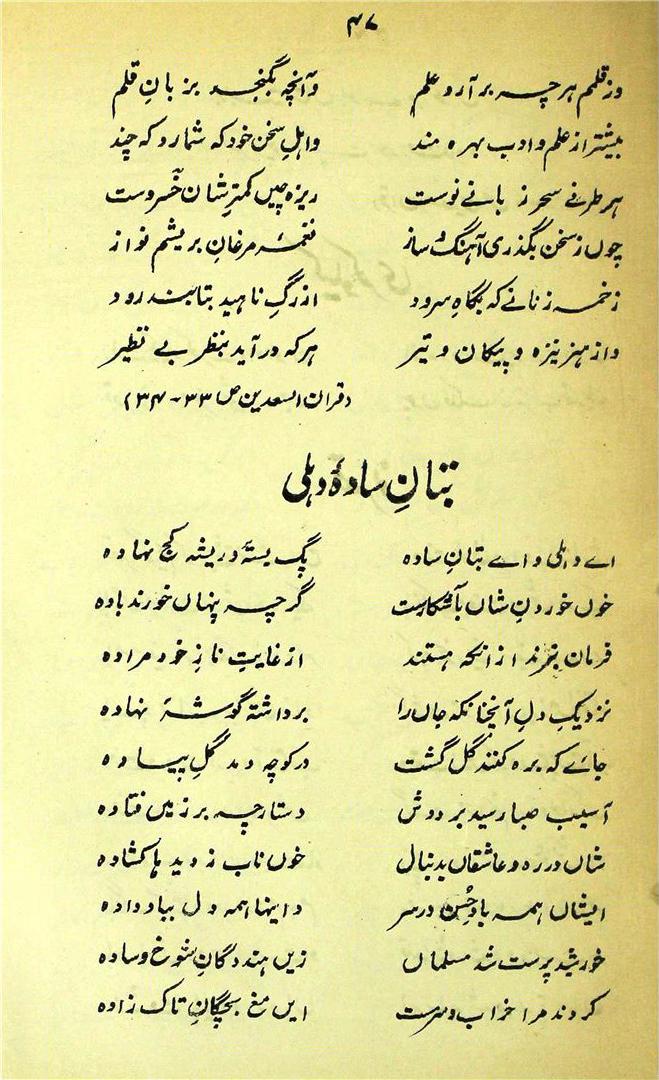 ۴۷
وز قلمم هر چہ بر آرد علم وآنچہ بگنجد بزبانِ قلم
بیشتر از علم و ادب بهره مند واہلِ سخن خود که شمارد که چند
هر طرفے سحر زبانے نوست ریزه چیں کمترِ شان خسروست
چوں ز سخن بگذری آہنگ و ساز نغمۂ مرغانِ بریشم نواز
زخمه زنانے که بگاهِ سرود از رگِ ناہید بتابند رود
واز ہنرِ نیزه و پیکان و تیر ہر که در آید بنظر بے نظیر
(قران السعدین ص ۳۳-۲۳۴
بتانِ سادۂ دہلی
اے دہلی و اے بتانِ ساده پگ بستۂ و ریشہ کج نہاده
خوں خوردنِ شاں بآشکارست گرچہ پنہاں خورند باده
فرمان نبرند ازانکہ ہستند از غایتِ نازِ خود مراده
نزدیکِ دلِ آنچنانکہ جاں را برداشتہ گوشۂ نہاده
جاۓ که بره کنند گل گشت در کوچہ دمد گلِ پیاده
آسیب صبا رسید بر دوش دستارچہ بر زمیں فتاده
شاں در ره و عاشقاں بدنبال خوں ناب ز دیدہا کشاده
ایشاں ہمہ بادِ حُسن در سر واینہا ہمہ دل بباد داده
خورشید پرست شد مسلماں زیں ہندگانِ شوخ و ساده
کردند مرا خراب و سرمست ایں مغ بچگانِ تاک زاده